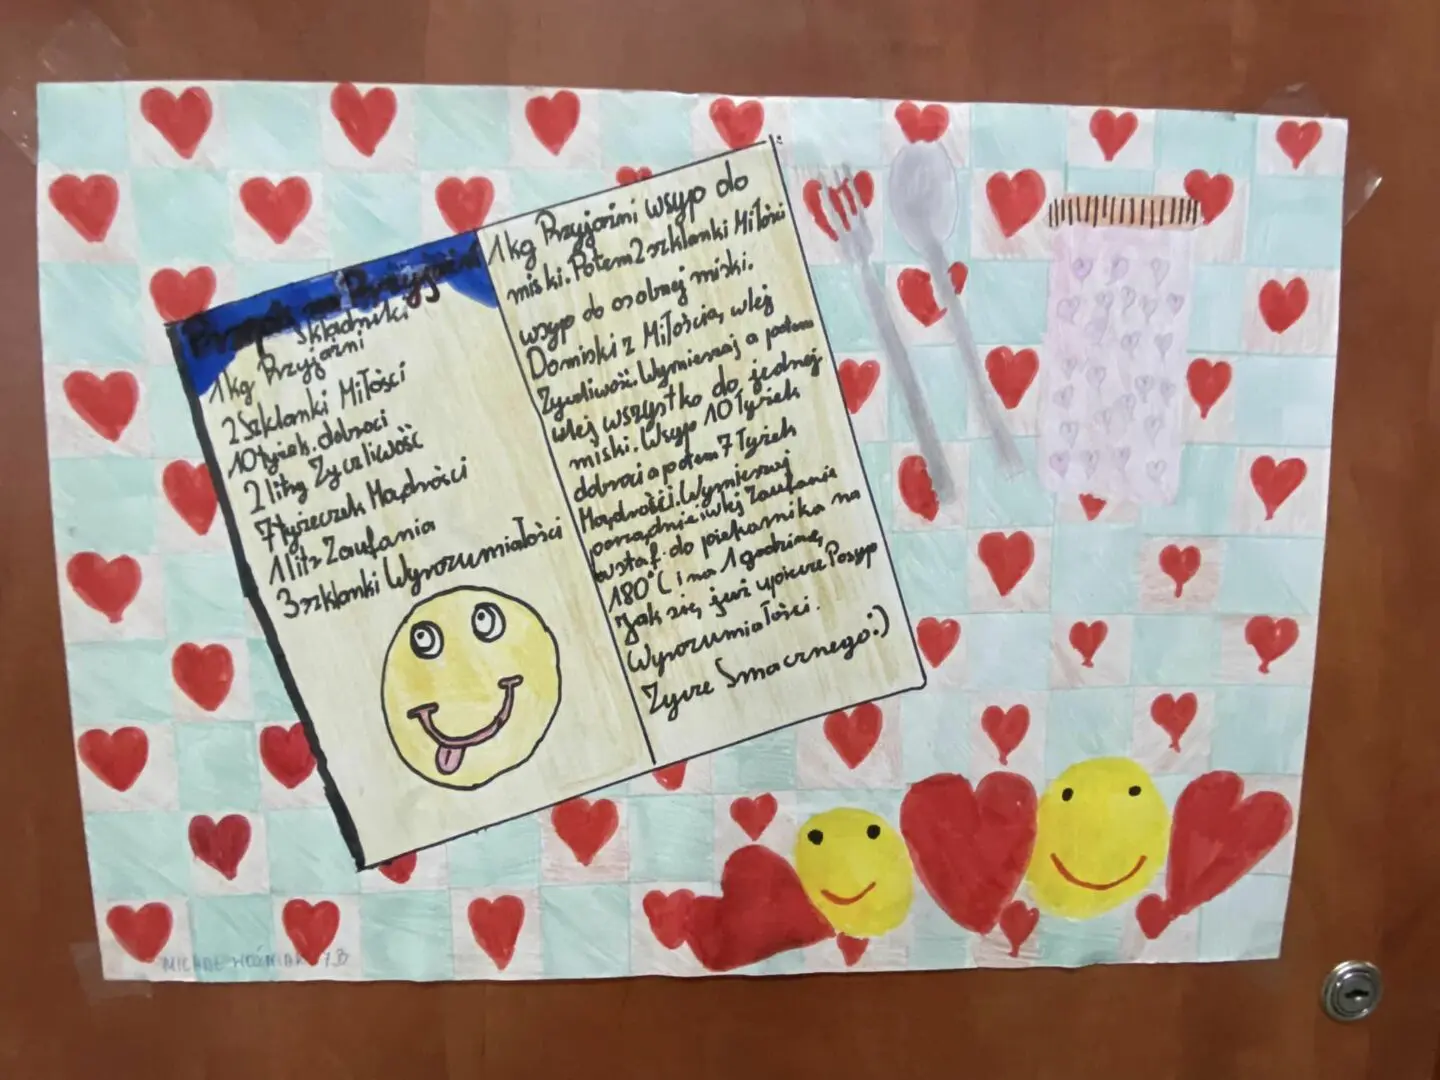 Przepis na Przyjaźń
Składniki
1kg Przyjaźni
2 Szklanki Miłości
10 łyżek dobroci
2 litry Życzliwość
7 łyżeczek Mądrości
1 litr Zaufania
3 szklanki Wyrozumiałości
1kg Przyjaźni wsyp do
miski. Potem 2 szklanki Miłości
wsyp do osobnej miski.
Do miski z Miłością, wlej
Życzliwość. Wymieszaj a potem
wlej wszystko do jednej
miski. Wsyp 10 łyżek
dobroci a potem 7 łyżek
Mądrości. Wymieszaj
porządnie i wlej Zaufanie
wstaf do piekarnika na
180°C i na 1 godzinę,
Jak się, już upiecze Posyp
Wyrozumiałości.
Życze Smacznego:)
WOŹNIAK